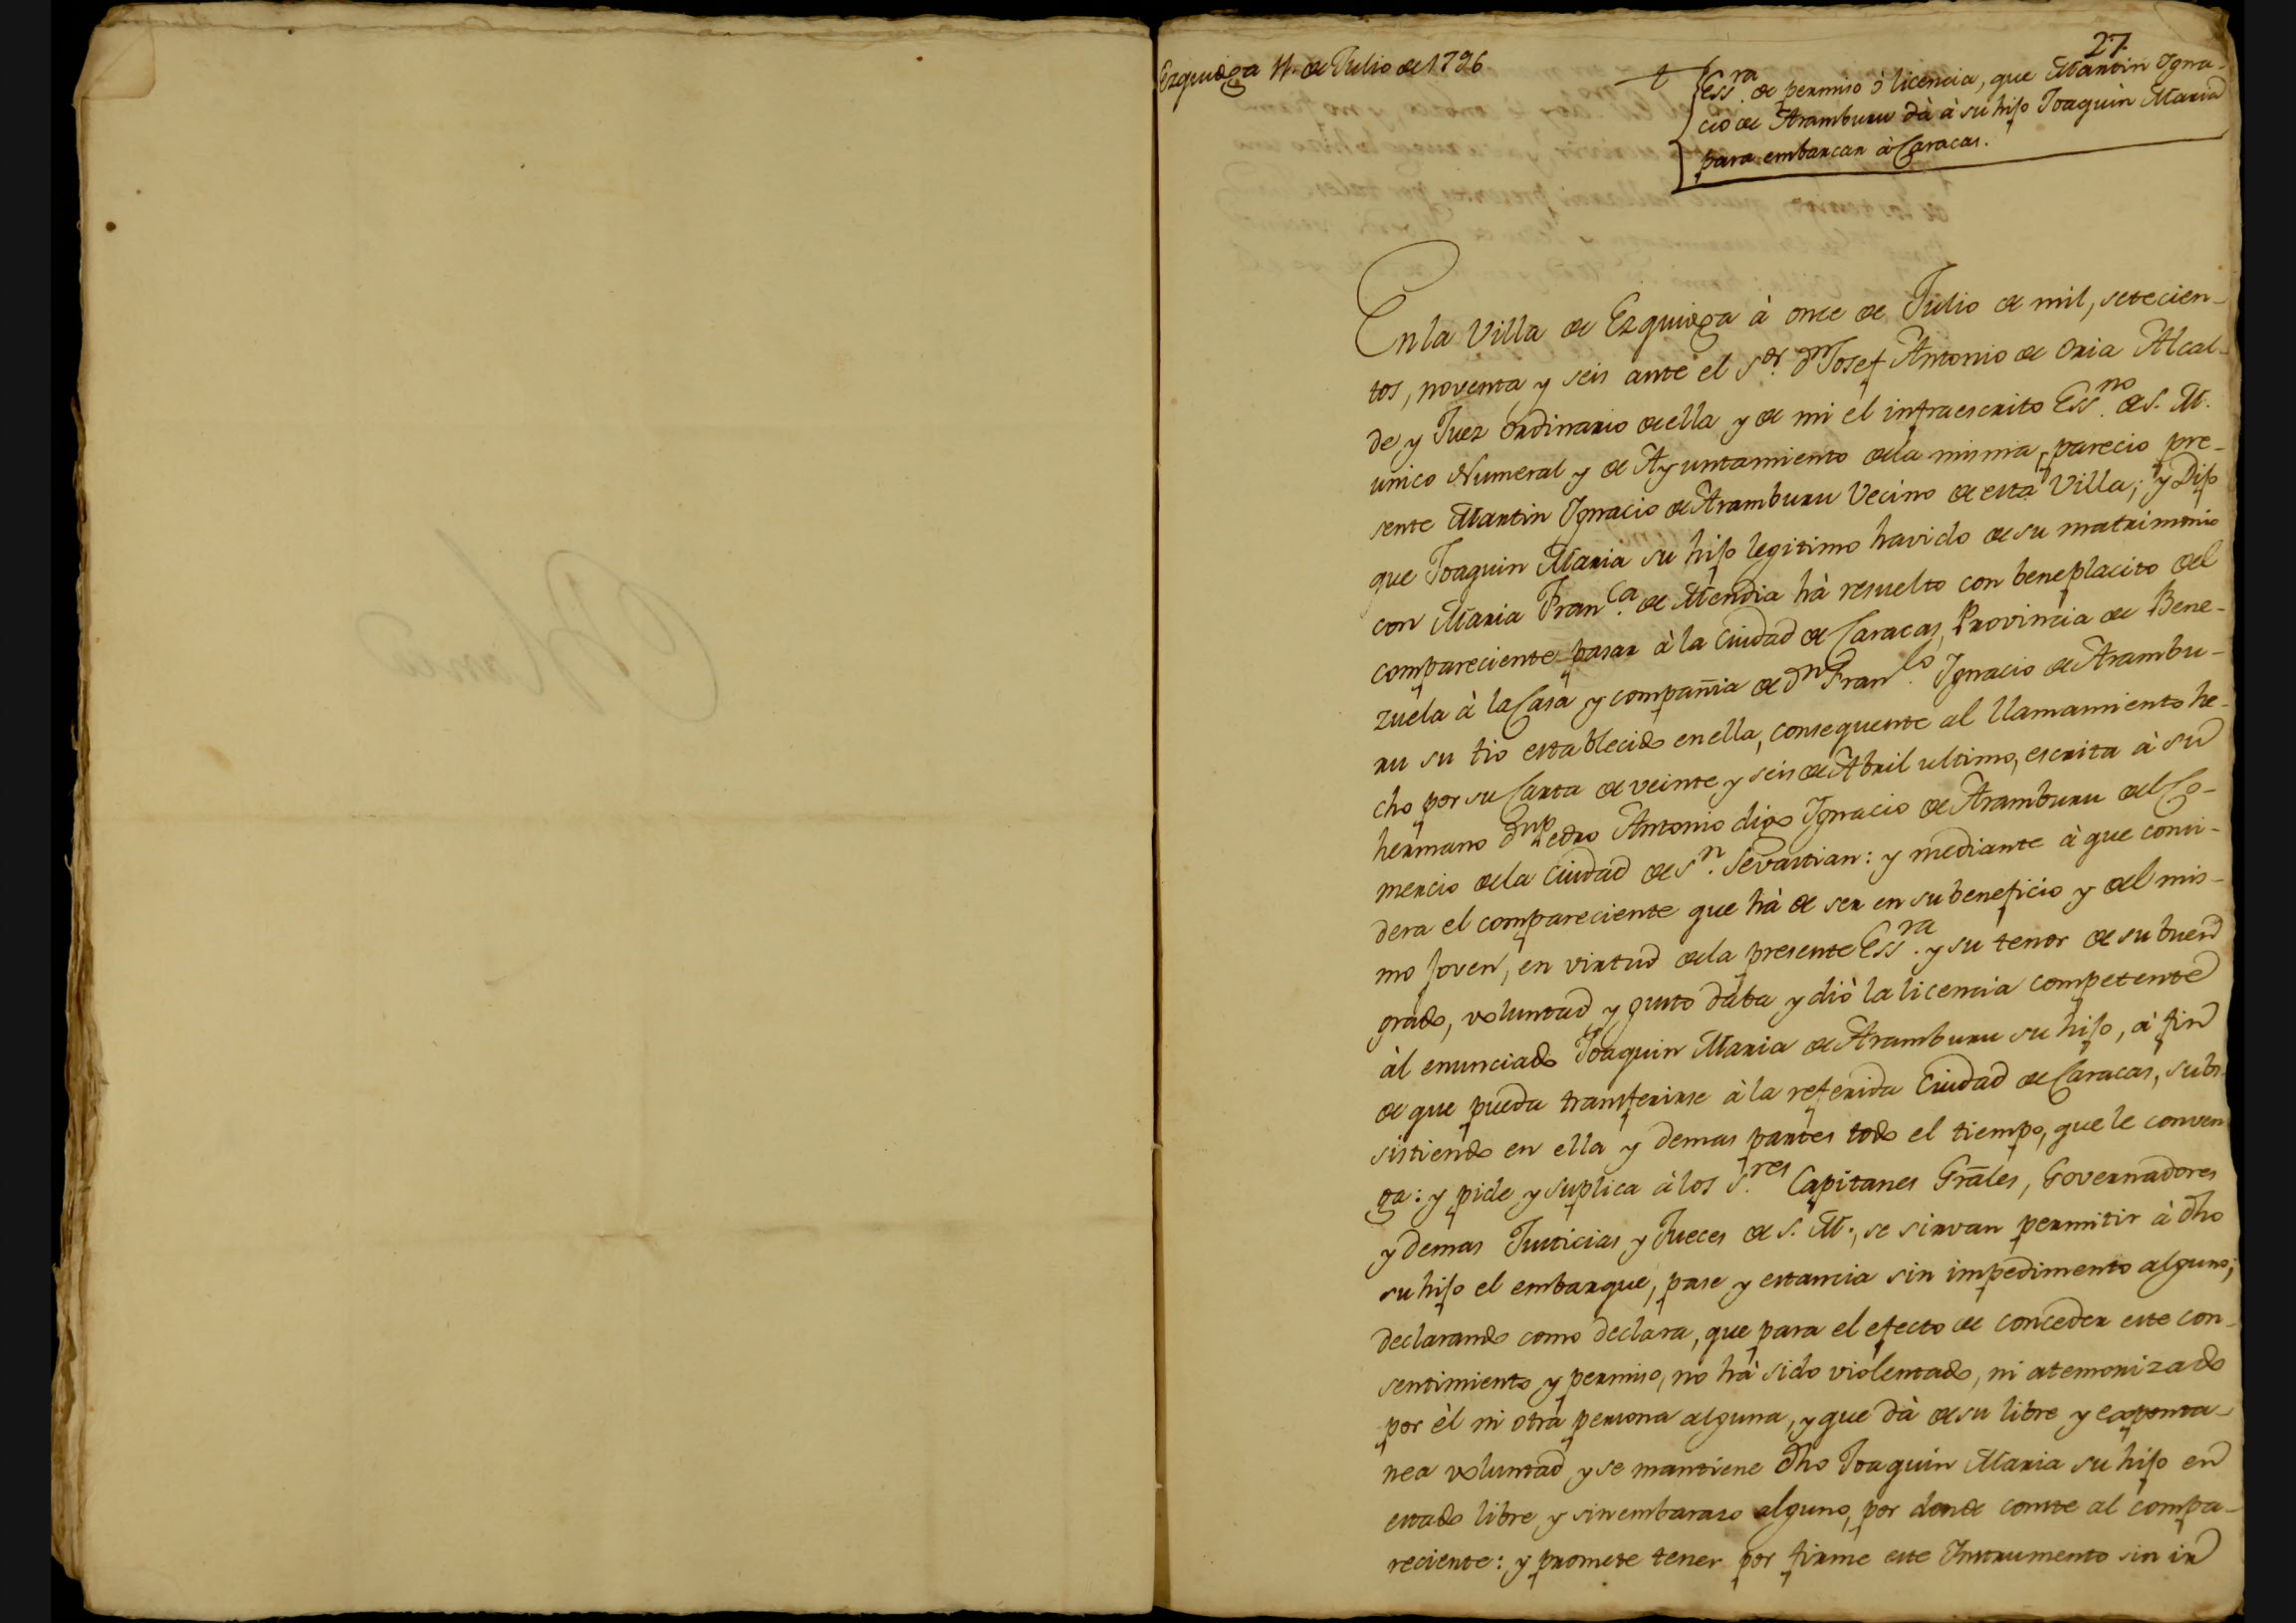 27.
Ezquioga 11. de Julio de 1796
t
Ess.ra de permiso ó licencia, que Martin Igna-
cio de Aramburu dà à su hijo Joaquin Maria
para embarcar à Caracas.
En la Villa de Ezquioga à once de Julio de mil, setecien-
tos, noventa y seis ante el S.or Dn Josef Antonio de Oria Alcal-
de y Juez ordinario de ella y de mi el infraescrito Ess.no de S. M.
unico Numeral y de Ayuntamiento de la misma, parecio pre-
sente Martin Ignacio de Aramburu Vecino de esta Villa; y Dijo
que Joaquin Maria su hijo legitimo havido de su matrimonio
con Maria Fran.ca de Mendia hà resuelto con beneplacito del
compareciente pasar à la Ciudad de Caracas, Provincia de Bene-
zuela à la Casa y compañia de Dn Fran.co Ignacio de Arambu-
ru su tio establecido en ella, consequente al llamamiento he-
cho por su Carta de veinte y seis de Abril ultimo, escrita à su
hermano Dn Pedro Antonio digo Ignacio de Aramburu del Co-
mercio de la Ciudad de S.n Sevastian: y mediante à que consi-
dera el compareciente que hà de ser en su beneficio y del mis-
mo joven, en virtud de la presente Ess.ra y su tenor de su buen
grado, voluntad y gusto daba y diò la licencia competente
àl enunciado Joaquin Maria de Aramburu su hijo, à fin
de que pueda transferirse à la referida Ciudad de Caracas, subs-
sistiendo en ella y demas partes todo el tiempo, que le conven
ga: y pide y suplica à los S.res Capitanes Grāles, Governadores
y demas Justicias y Jueces de S. M., se sirvan permitir à dho
su hijo el embarque, pase y estancia sin impedimento alguno;
declarando como declara, que para el efecto de conceder este con-
sentimiento y permiso, no hà sido violentado, ni atemorizado
por èl ni otra persona alguna, y que dà de su libre y esponta-
nea voluntad y se mantiene dho Joaquin Maria su hijo en
estado libre y sin embarazo alguno, por donde conste al compa-
reciente: y promete tener por firme este Instrumento sin ir